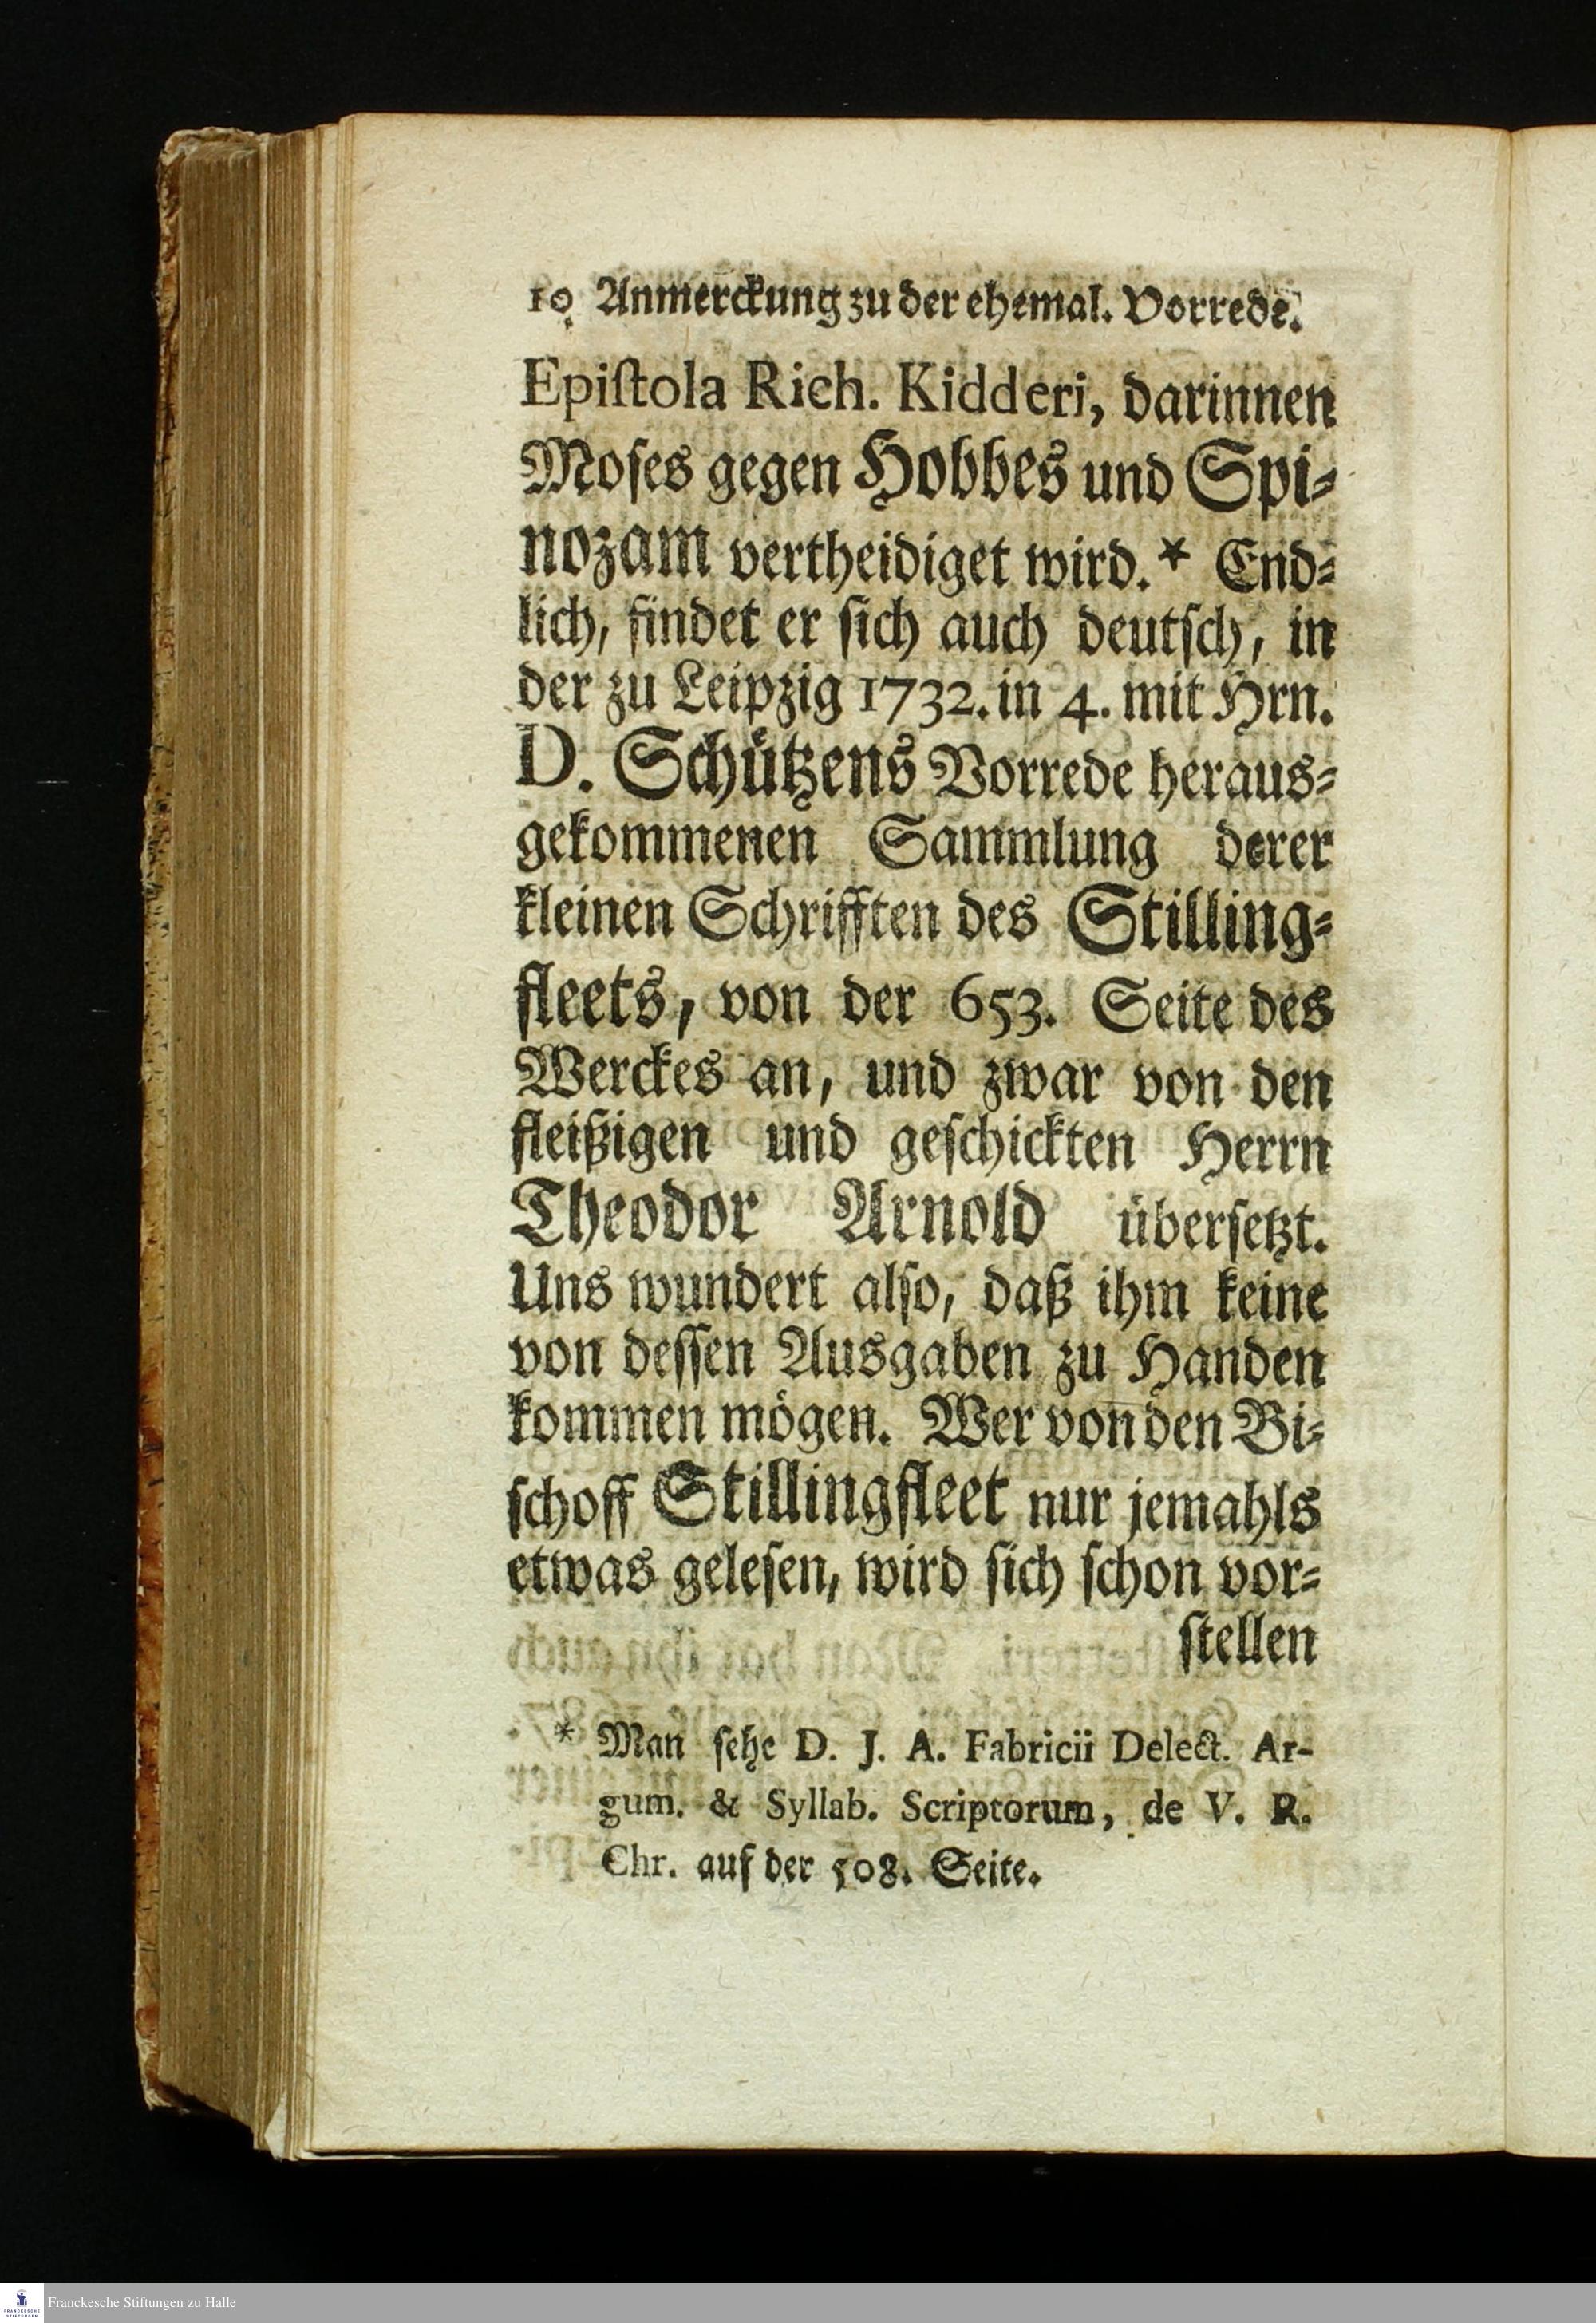 10. Anmerckung zu der ehemal. Vorrede.
Epiſtola Rich. Kidderi, darinnen
Moſes gegen Hobbes und Spi⸗
nozam vertheidiget wird. * End⸗
lich, findet er ſich auch deutſch, in
der zu Leipzig 1732. in 4. mit Hrn.
D. Schützens Vorrede heraus⸗
gekommenen Sammlung derer
kleinen Schrifften des Stilling⸗
fleets, von der 653. Seite des
Werckes an, und zwar von den
fleißigen und geſchickten Herrn
Theodor Arnold überſetzt.
Uns wundert alſo, daß ihm keine
von deſſen Ausgaben zu Handen
kommen mögen. Wer von den Bi⸗
ſchoff Stillingfleet nur jemahls
etwas geleſen, wird ſich ſchon vor⸗
ſtellen
* Man ſehe D. J. A. Fabricii Delect. Ar-
gum. & Syllab. Scriptorum, de V. R.
Chr. auf der 508. Seite.
Franckesche Stiftungen zu Halle